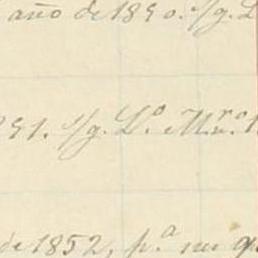 año de 1850. s/g. L
851. s/g. Lº. Mrº.
de 1852, p.ª mi